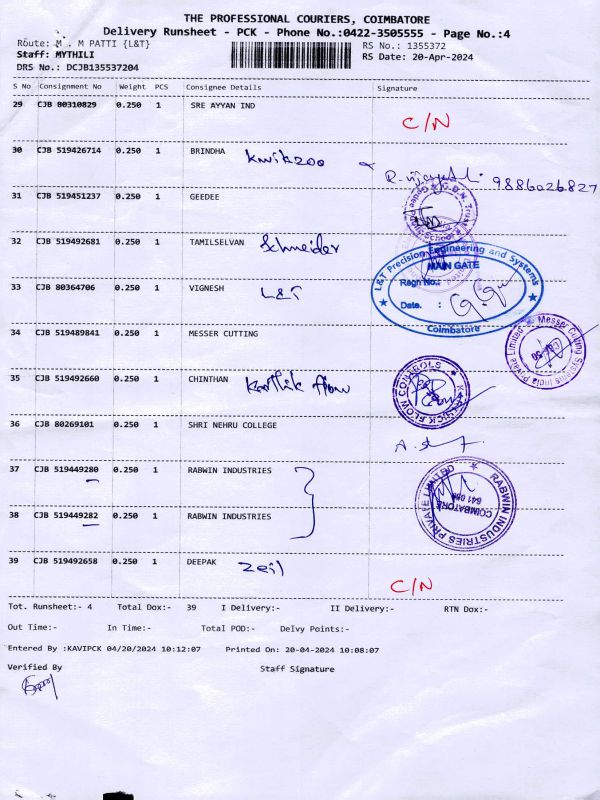 THE PROFESSIONAL COURIERS, COIMBATORE
Delivery Runsheet - PCK - Phone No.:0422-3505555 - Page No.:4
Route: M . M PATTI {L&T} RS No.: 1355372
Staff: MYTHILI RS Date: 20-Apr-2024
DRS No.: DCJB135537204
S No Consignment No Weight PCS Consignee Details Signature
29 CJB 80310829 0.250 1 SRE AYYAN IND C/N
30 CJB 519426714 0.250 1 BRINDHA Kwikzoo 9886026827
31 CJB 519451237 0.250 1 GEEDEE
32 CJB 519492681 0.250 1 TAMILSELVAN Schneider
L&T Precision Engineering and Systems
MAIN GATE
Regn No.:
Date. :
Coimbatore
33 CJB 80364706 0.250 1 VIGNESH L&T
34 CJB 519489841 0.250 1 MESSER CUTTING Messer Cutting Systems India Private Limited
35 CJB 519492660 0.250 1 CHINTHAN Karthik flow
36 CJB 80269101 0.250 1 SHRI NEHRU COLLEGE
37 CJB 519449280 0.250 1 RABWIN INDUSTRIES
RABWIN INDUSTRIES PRIVATE LIMITED
COIMBATORE
38 CJB 519449282 0.250 1 RABWIN INDUSTRIES
39 CJB 519492658 0.250 1 DEEPAK Zeil C/N
Tot. Runsheet:- 4 Total Dox:- 39 I Delivery:- II Delivery:- RTN Dox:-
Out Time:- In Time:- Total POD:- Delvy Points:-
Entered By :KAVIPCK 04/20/2024 10:12:07 Printed On: 20-04-2024 10:08:07
Verified By Staff Signature